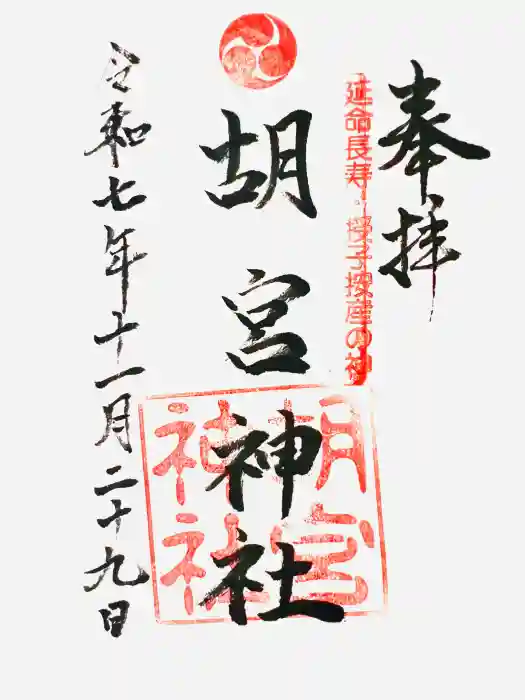 奉拝
延命長寿・授子授産の神
胡宮神社
胡宮
神社
令和七年十一月二十九日